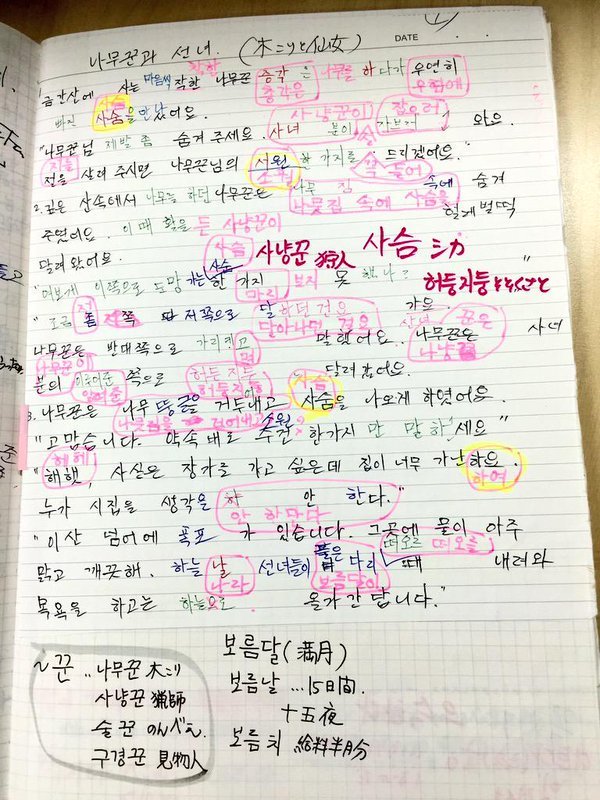 나무꾼과 선녀. (木こりと仙女)
DATE
착한
금강산에 사는 마음씨 착한 나무꾼 총각 은 나무를 하다가 우연히
총각은 우연히
사슴
빠진 사숨을 만났어요.
사냥꾼이 잡으러
"나무꾼님 제발 좀 숨겨 주세요. 사녀 분이 가브러 와요.
저를
전을 살려 주시면 나무꾼님의 서원 한 가지를 드리겠어요."
소원 들어
2. 깊은 산속에서 나무를 하던 나무꾼은 나무 짐 속에 숨겨
나뭇짐 속에 사슴을
주었어요. 이때 활을 든 사냥꾼이 헐게벌떡
달려 왔어요.
사슴 사냥꾼 狩人 사슴 シカ
사숨
"여보게 이쪽으로 도망 가는 한 가지 보지 못 했나?
마리
허둥지둥
"조금 좀 저쪽으로 달 하던 건을 가요
달아나던 걸요
나무꾼은 반대쪽으로 가리키고 말했어요. 나무꾼은 사녀
며
나무꾼이
분의 쪽으로 허둥지둥 달려 갔어요.
3. 나무꾼은 나무 뚱글을 거두내고 사숨을 나오게 하였어요.
사슴
걷어내고 소원
"고맙습니다. 약속대로 수건 한가지만 말하세요"
헤헤
"해햇, 사실은 장가를 가고 싶은데 집이 너무 가난하요.
하여
누가 시집을 생각을 하 안 한다."
안 한다
"이산 넘어에 폭포 가 있습니다. 그곳에 물이 아주
떠오르 떠오를
맑고 깨끗해. 하늘 날 선녀들이 다리 때 내려와
나라 보름달이
목욕을 하고는 하늘으로 올라간답니다."
~꾼 ..나무꾼 木こり
사냥꾼 猟師
술꾼 のんべえ.
구경꾼 見物人
보름달(満月)
보름날 ...15日間.
十五夜
보름치 給料半月分